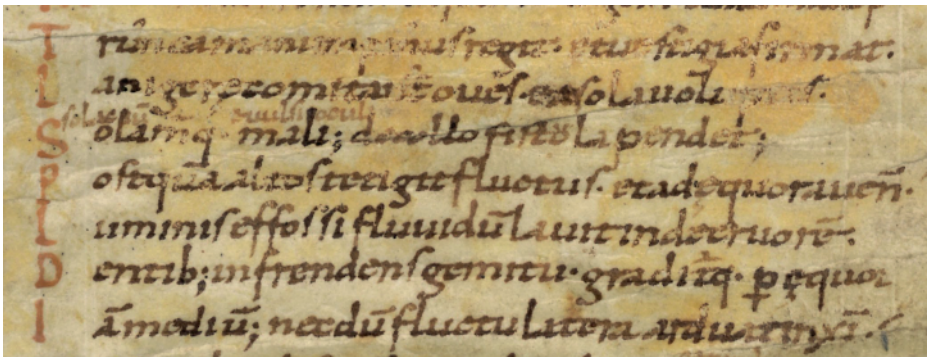 T runca manum pinus regit· et uestigia firmat·
L anigere comitant̄ oues· ea sola uoluptas·
euulsi oculi
S olam̄q· mali; de collo fistola pendet;
P ostquā altos tetigit fluctus· et ad ęquora uen̄·
L uminis effossi fluuidū lauit inde cruorē·
D entib; infrendens gemitu· gradit̄q· ꝑ ęquor
I ā mediū; necdū fluctu latera ardua tinx̄·